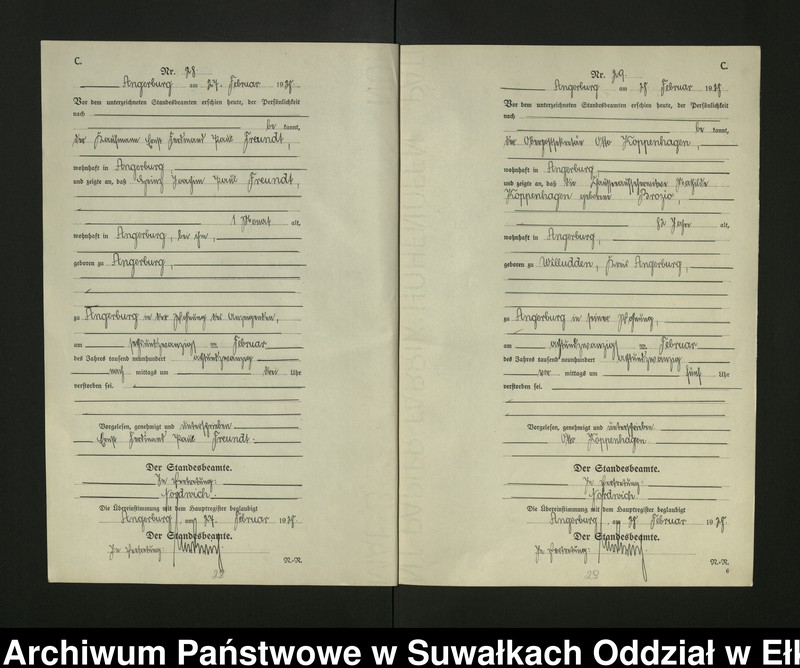 C.
Nr. 28.
Angerburg am 27. Februar 1928.
Vor dem unterzeichneten Standesbeamten erschien heute, der Persönlichkeit
nach
be kannt,
der Kaufmann Ernst Ferdinand Paul Freundt,
wohnhaft in Angerburg,
und zeigte an, daß Heinz Joachim Paul Freundt,
1 Monat alt,
wohnhaft in Angerburg, bei ihm,
geboren zu Angerburg,
zu Angerburg in der Wohnung des Anzeigenden,
am sechsundzwanzigsten Februar
des Jahres tausend neunhundert achtundzwanzig
nach mittags um drei Uhr
verstorben sei.
Vorgelesen, genehmigt und unterschrieben
Ernst Ferdinand Paul Freundt.
Der Standesbeamte.
In Vertretung:
Nordwich.
Die Übereinstimmung mit dem Hauptregister beglaubigt
Angerburg, am 27. Februar 1928.
Der Standesbeamte.
In Vertretung:
N.-R.
28
C.
Nr. 29.
Angerburg am Februar 1928.
Vor dem unterzeichneten Standesbeamten erschien heute, der Persönlichkeit
nach
be kannt,
der Oberpostsekretär Otto Koppenhagen,
wohnhaft in Angerburg,
und zeigte an, daß die Mathilde
Koppenhagen geborene Brozio,
82 Jahre alt,
wohnhaft in Angerburg,
geboren zu Willudden, Kreis Angerburg,
zu Angerburg in seiner Wohnung,
am achtundzwanzigsten Februar
des Jahres tausend neunhundert achtundzwanzig
vor mittags um fünf Uhr
verstorben sei.
Vorgelesen, genehmigt und unterschrieben
Otto Koppenhagen
Der Standesbeamte.
In Vertretung:
Nordwich.
Die Übereinstimmung mit dem Hauptregister beglaubigt
Angerburg, am Februar 1928.
Der Standesbeamte.
In Vertretung:
N.-R.
6
29
Archiwum Państwowe w Suwałkach Oddział w Eł